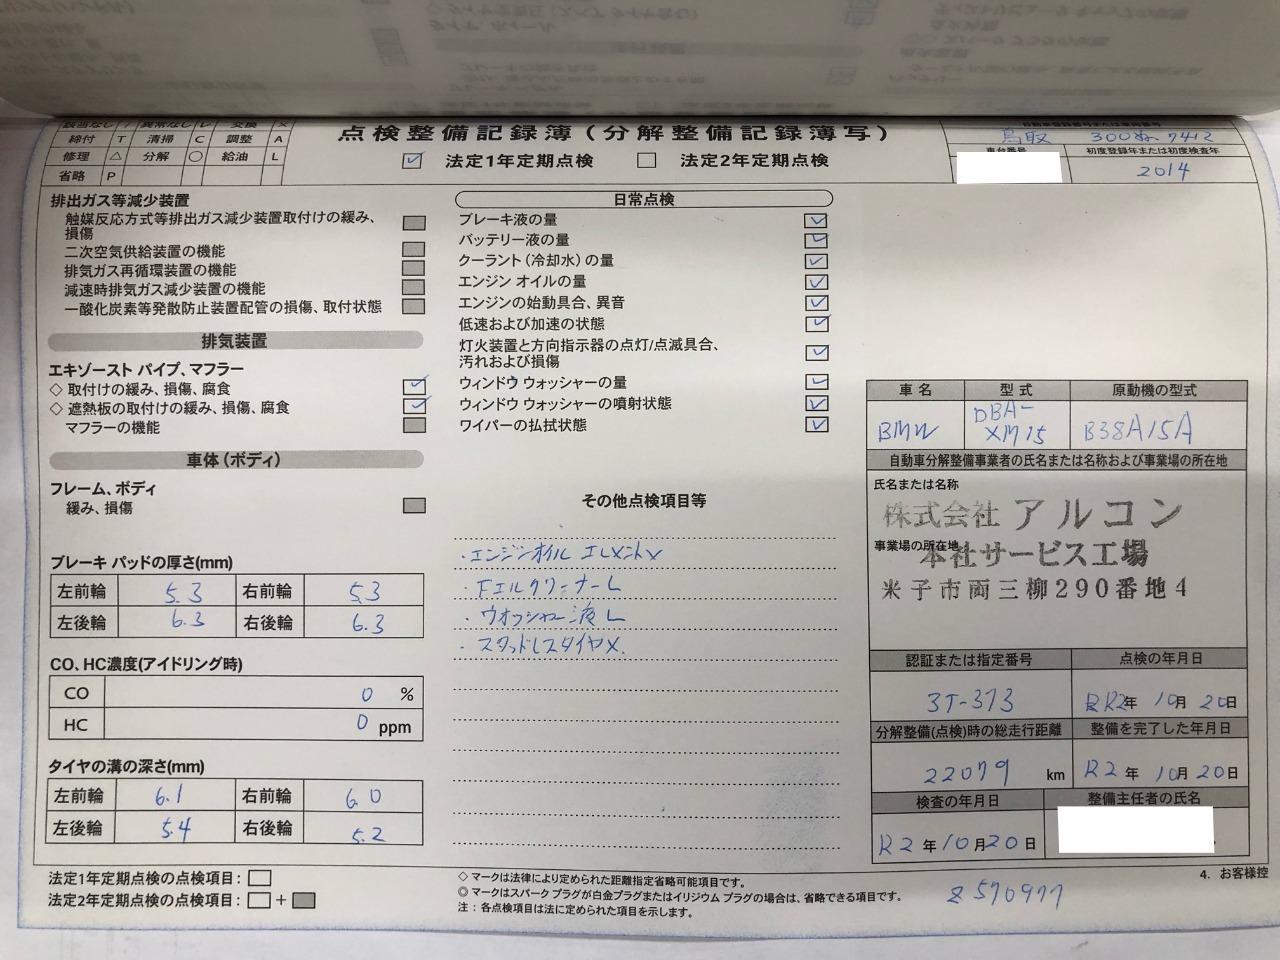 該当なし / 異常なし レ 交換 ×
締付 T 清掃 C 調整 A
修理 △ 分解 ○ 給油 L
省略 P
点検整備記録簿(分解整備記録簿写)
法定1年定期点検 法定2年定期点検
自動車登録番号または車両番号
鳥取 300ぬ7412
車台番号
初度登録年または初度検査年
2014
排出ガス等減少装置
触媒反応方式等排出ガス減少装置取付けの緩み、
損傷
二次空気供給装置の機能
排気ガス再循環装置の機能
減速時排気ガス減少装置の機能
一酸化炭素等発散防止装置配管の損傷、取付状態
排気装置
エキゾースト パイプ、マフラー
◇ 取付けの緩み、損傷、腐食
◇ 遮熱板の取付けの緩み、損傷、腐食
マフラーの機能
車体(ボディ)
フレーム、ボディ
緩み、損傷
ブレーキ パッドの厚さ(mm)
左前輪 5.3 右前輪 5.3
左後輪 6.3 右後輪 6.3
CO、HC濃度(アイドリング時)
CO 0 %
HC 0 ppm
タイヤの溝の深さ(mm)
左前輪 6.1 右前輪 6.0
左後輪 5.4 右後輪 5.2
日常点検
ブレーキ液の量
バッテリー液の量
クーラント(冷却水)の量
エンジン オイルの量
エンジンの始動具合、異音
低速および加速の状態
灯火装置と方向指示器の点灯/点滅具合、
汚れおよび損傷
ウィンドウ ウォッシャーの量
ウィンドウ ウォッシャーの噴射状態
ワイパーの払拭状態
その他点検項目等
・エンジンオイル エレメント×
・Fエルクリーナー L
・ウオッシャー液 L
・スタッドレスタイヤ×.
車名 型式 原動機の型式
BMW DBA-XM15 B38A15A
自動車分解整備事業者の氏名または名称および事業場の所在地
氏名または名称
株式会社アルコン
事業場の所在地
本社サービス工場
米子市両三柳290番地4
認証または指定番号 点検の年月日
3T-373 R2年 10月 20日
分解整備(点検)時の総走行距離 整備を完了した年月日
22079 km R2年 10月20日
検査の年月日 整備主任者の氏名
R2年10月20日
4. お客様控
法定1年定期点検の点検項目:
法定2年定期点検の点検項目: +
◇ マークは法律により定められた距離指定省略可能項目です。
◎ マークはスパーク プラグが白金プラグまたはイリジウム プラグの場合は、省略できる項目です。
注:各点検項目は法に定められた項目を示します。